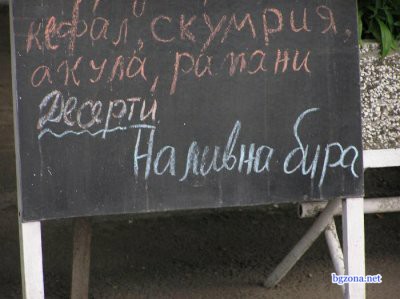 кефал, скумрия,
акула, рапани
Десерти
Наливна бира
bgzona.net